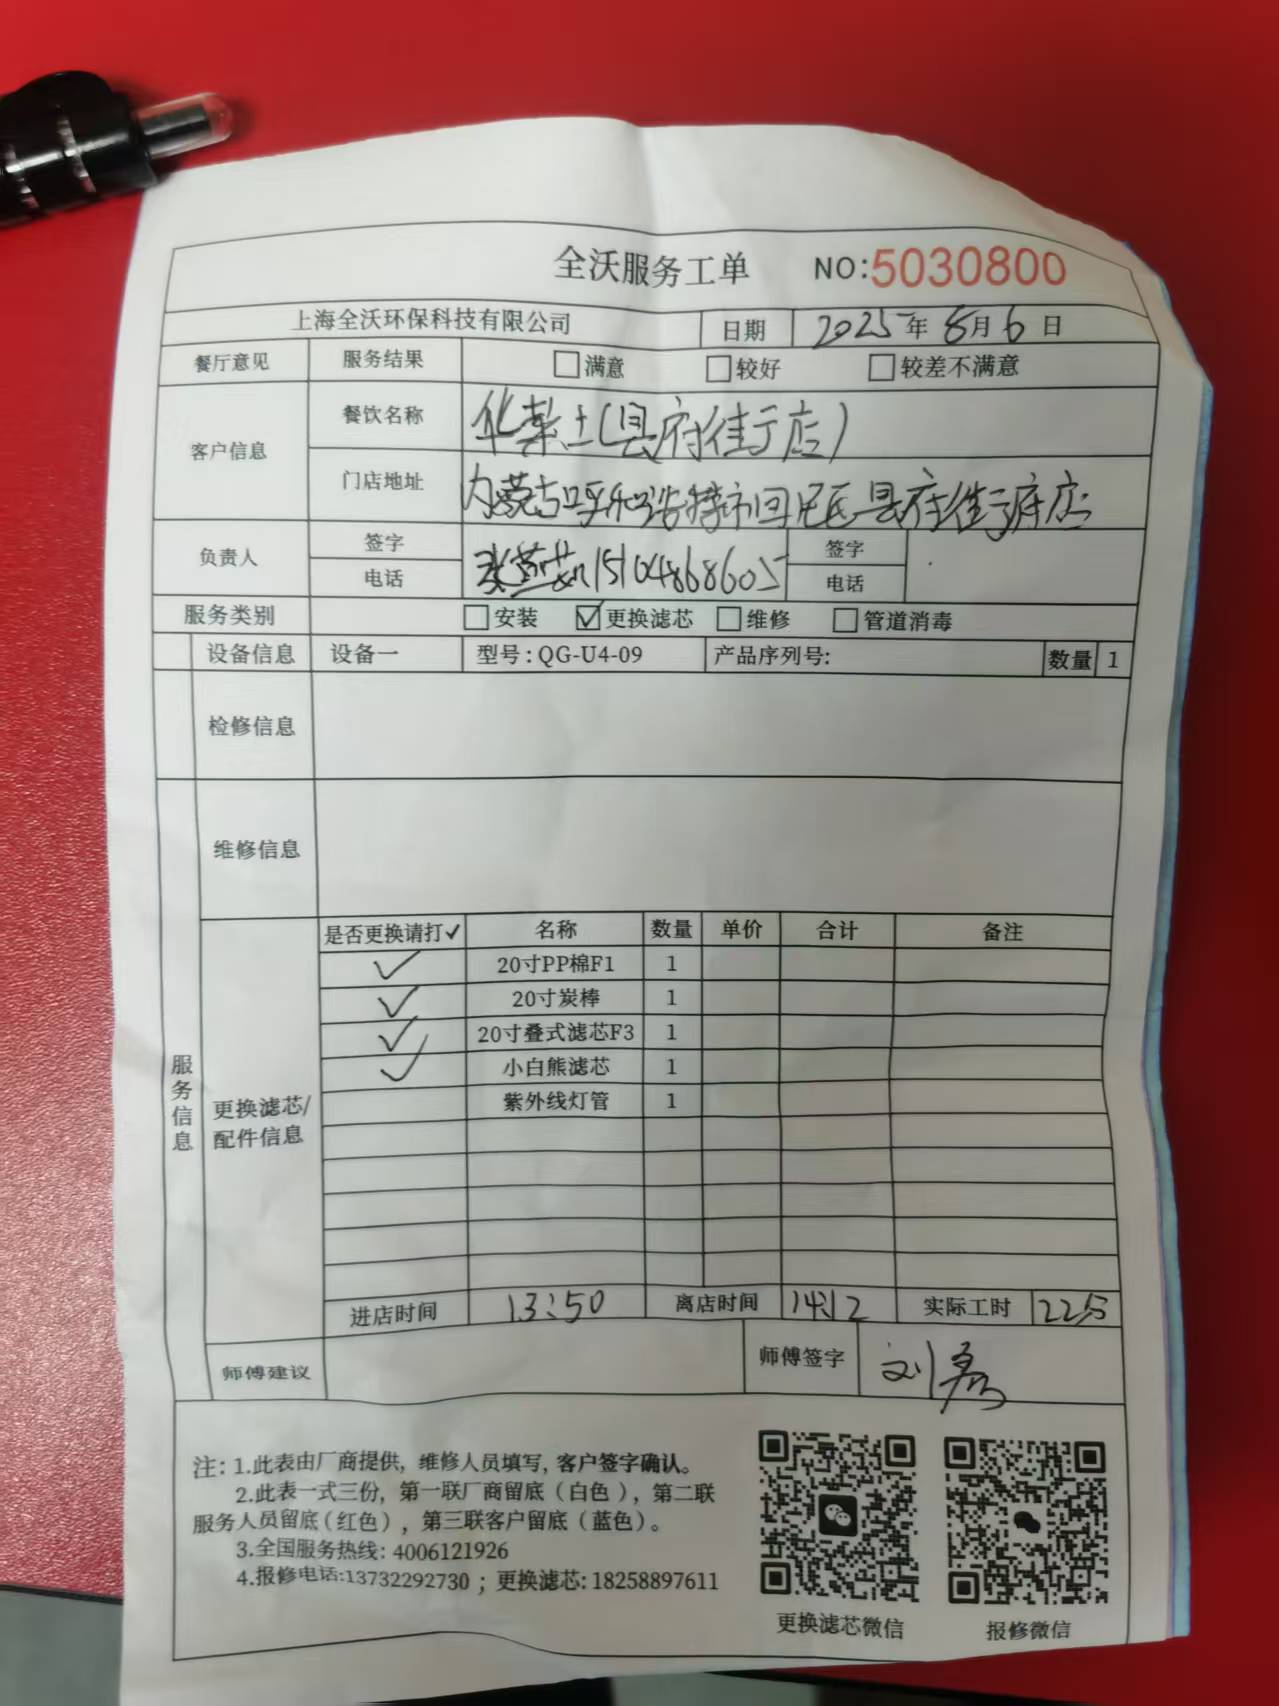 全沃服务工单 NO:5030800
上海全沃环保科技有限公司 日期 2025年8月6日
餐厅意见 服务结果 满意 较好 较差不满意
客户信息 餐饮名称 华莱士(县府街于店)
门店地址 内蒙古呼和浩特市回民区县府街于府店
负责人 签字 签字
电话 15104868605 电话
服务类别 安装 ☑更换滤芯 维修 管道消毒
设备信息 设备一 型号:QG-U4-09 产品序列号: 数量 1
检修信息
维修信息
服务信息
更换滤芯/配件信息
是否更换请打✓ 名称 数量 单价 合计 备注
✓ 20寸PP棉F1 1
✓ 20寸炭棒 1
✓ 20寸叠式滤芯F3 1
✓ 小白熊滤芯 1
紫外线灯管 1
进店时间 13:50 离店时间 14:12 实际工时 22分
师傅建议 师傅签字 刘磊
注: 1.此表由厂商提供, 维修人员填写, 客户签字确认。
2.此表一式三份, 第一联厂商留底(白色), 第二联
服务人员留底(红色), 第三联客户留底(蓝色)。
3.全国服务热线: 4006121926
4.报修电话:13732292730 ; 更换滤芯: 18258897611
更换滤芯微信 报修微信